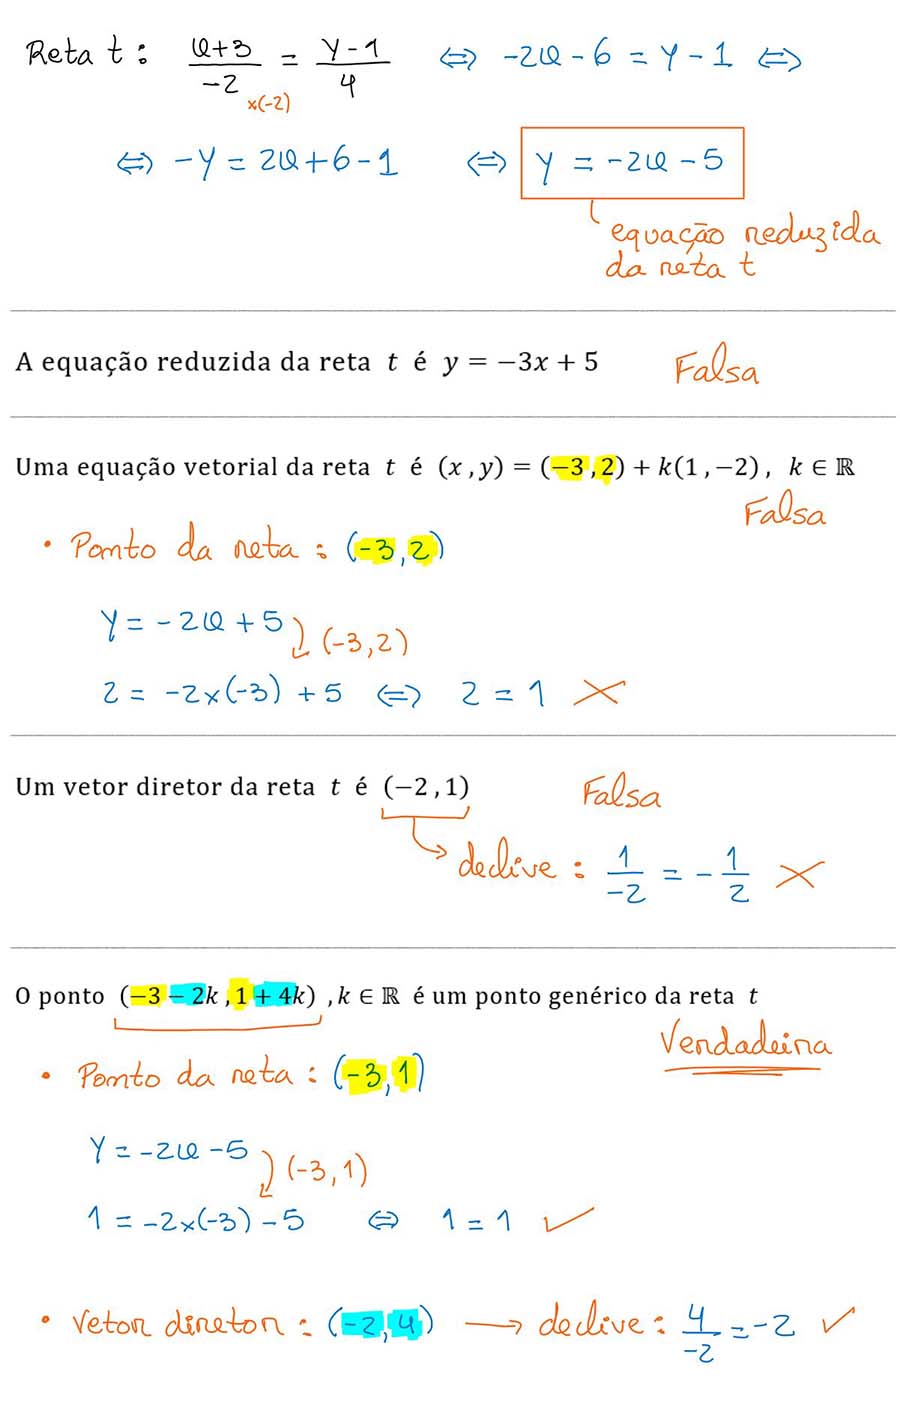 Reta t : x+3/-2 = y-1/4 ⇔ -2x - 6 = y - 1 ⇔
×(-2)
⇔ -y = 2x + 6 - 1 ⇔ y = -2x - 5
equação reduzida
da reta t
A equação reduzida da reta t é y = −3x + 5 Falsa
Uma equação vetorial da reta t é (x , y) = (−3 , 2) + k(1 , −2) , k ∈ ℝ
Falsa
• Ponto da reta : (-3, 2)
y = -2x + 5
(-3, 2)
2 = -2×(-3) + 5 ⇔ 2 = 1 ✗
Um vetor diretor da reta t é (−2 , 1) Falsa
declive : 1/-2 = - 1/2 ✗
O ponto (−3 − 2k , 1 + 4k) , k ∈ ℝ é um ponto genérico da reta t
Verdadeira
• Ponto da reta : (-3, 1)
y = -2x - 5
(-3, 1)
1 = -2×(-3) - 5 ⇔ 1 = 1 ✓
• Vetor diretor : (-2, 4) → declive : 4/-2 = -2 ✓